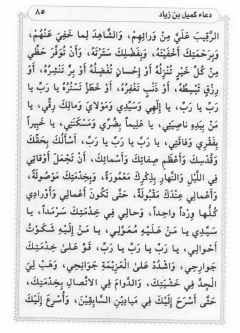 دعاء كميل بن زياد
٨٥
الرَّقِيبَ عَلَيَّ مِنْ وَرَائِهِمْ، وَالشَّاهِدَ لِمَا خَفِيَ عَنْهُمْ،
وَبِرَحْمَتِكَ أَخْفَيْتَهُ، وَبِفَضْلِكَ سَتَرْتَهُ، وَأَنْ تُوَفِّرَ حَظِّي
مِنْ كُلِّ خَيْرٍ تُنْزِلُهُ أَوْ إِحْسَانٍ تُفْضِلُهُ أَوْ بِرٍّ تَنْشُرُهُ، أَوْ
رِزْقٍ تَبْسُطُهُ، أَوْ ذَنْبٍ تَغْفِرُهُ، أَوْ خَطَإٍ تَسْتُرُهُ يَا رَبِّ يَا
رَبِّ يَا رَبِّ، يَا إِلٰهِي وَسَيِّدِي وَمَوْلَايَ وَمَالِكَ رِقِّي، يَا
مَنْ بِيَدِهِ نَاصِيَتِي، يَا عَلِيماً بِضُرِّي وَمَسْكَنَتِي، يَا خَبِيراً
بِفَقْرِي وَفَاقَتِي، يَا رَبِّ يَا رَبِّ يَا رَبِّ، أَسْأَلُكَ بِحَقِّكَ
وَقُدْسِكَ وَأَعْظَمِ صِفَاتِكَ وَأَسْمَائِكَ، أَنْ تَجْعَلَ أَوْقَاتِي
فِي اللَّيْلِ وَالنَّهَارِ بِذِكْرِكَ مَعْمُورَةً، وَبِخِدْمَتِكَ مَوْصُولَةً،
وَأَعْمَالِي عِنْدَكَ مَقْبُولَةً، حَتَّى تَكُونَ أَعْمَالِي وَأَوْرَادِي
كُلُّهَا وِرْداً وَاحِداً، وَحَالِي فِي خِدْمَتِكَ سَرْمَداً، يَا
سَيِّدِي يَا مَنْ عَلَيْهِ مُعَوَّلِي، يَا مَنْ إِلَيْهِ شَكَوْتُ
أَحْوَالِي، يَا رَبِّ يَا رَبِّ يَا رَبِّ، قَوِّ عَلَىٰ خِدْمَتِكَ
جَوَارِحِي، وَاشْدُدْ عَلَىٰ الْعَزِيمَةِ جَوَانِحِي، وَهَبْ لِيَ
الْجِدَّ فِي خَشْيَتِكَ، وَالدَّوَامَ فِي الِاتِّصَالِ بِخِدْمَتِكَ،
حَتَّى أَسْرَحَ إِلَيْكَ فِي مَيَادِينِ السَّابِقِينَ، وَأُسْرِعَ إِلَيْكَ